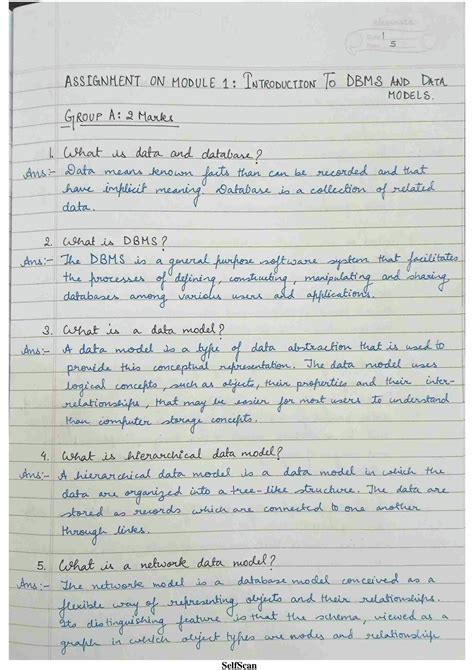 1
5
ASSIGNMENT ON MODULE 1: INTRODUCTION TO DBMS AND DATA
MODELS.
GROUP A: 2 Marks
1. What is data and database?
Ans:- Data means known facts than can be recorded and that
have implicit meaning. Database is a collection of related
data.
2. What is DBMS?
Ans:- The DBMS is a general purpose software system that facilitates
the processes of defining, constructing, manipulating and sharing
databases among various users and applications.
3. What is a data model?
Ans:- A data model is a type of data abstraction that is used to
provide this conceptual representation. The data model uses
logical concepts, such as objects, their properties and their inter-
relationships, that may be easier for most users to understand
than computer storage concepts.
4. What is hierarchical data model?
Ans:- A hierarchical data model is a data model in which the
data are organized into a tree-like structure. The data are
stored as records which are connected to one another
through links.
5. What is a network data model?
Ans:- The network model is a database model conceived as a
flexible way of representing objects and their relationships.
Its distinguishing feature is that the schema, viewed as a
graph in which object types are nodes and relationship
SelfScan